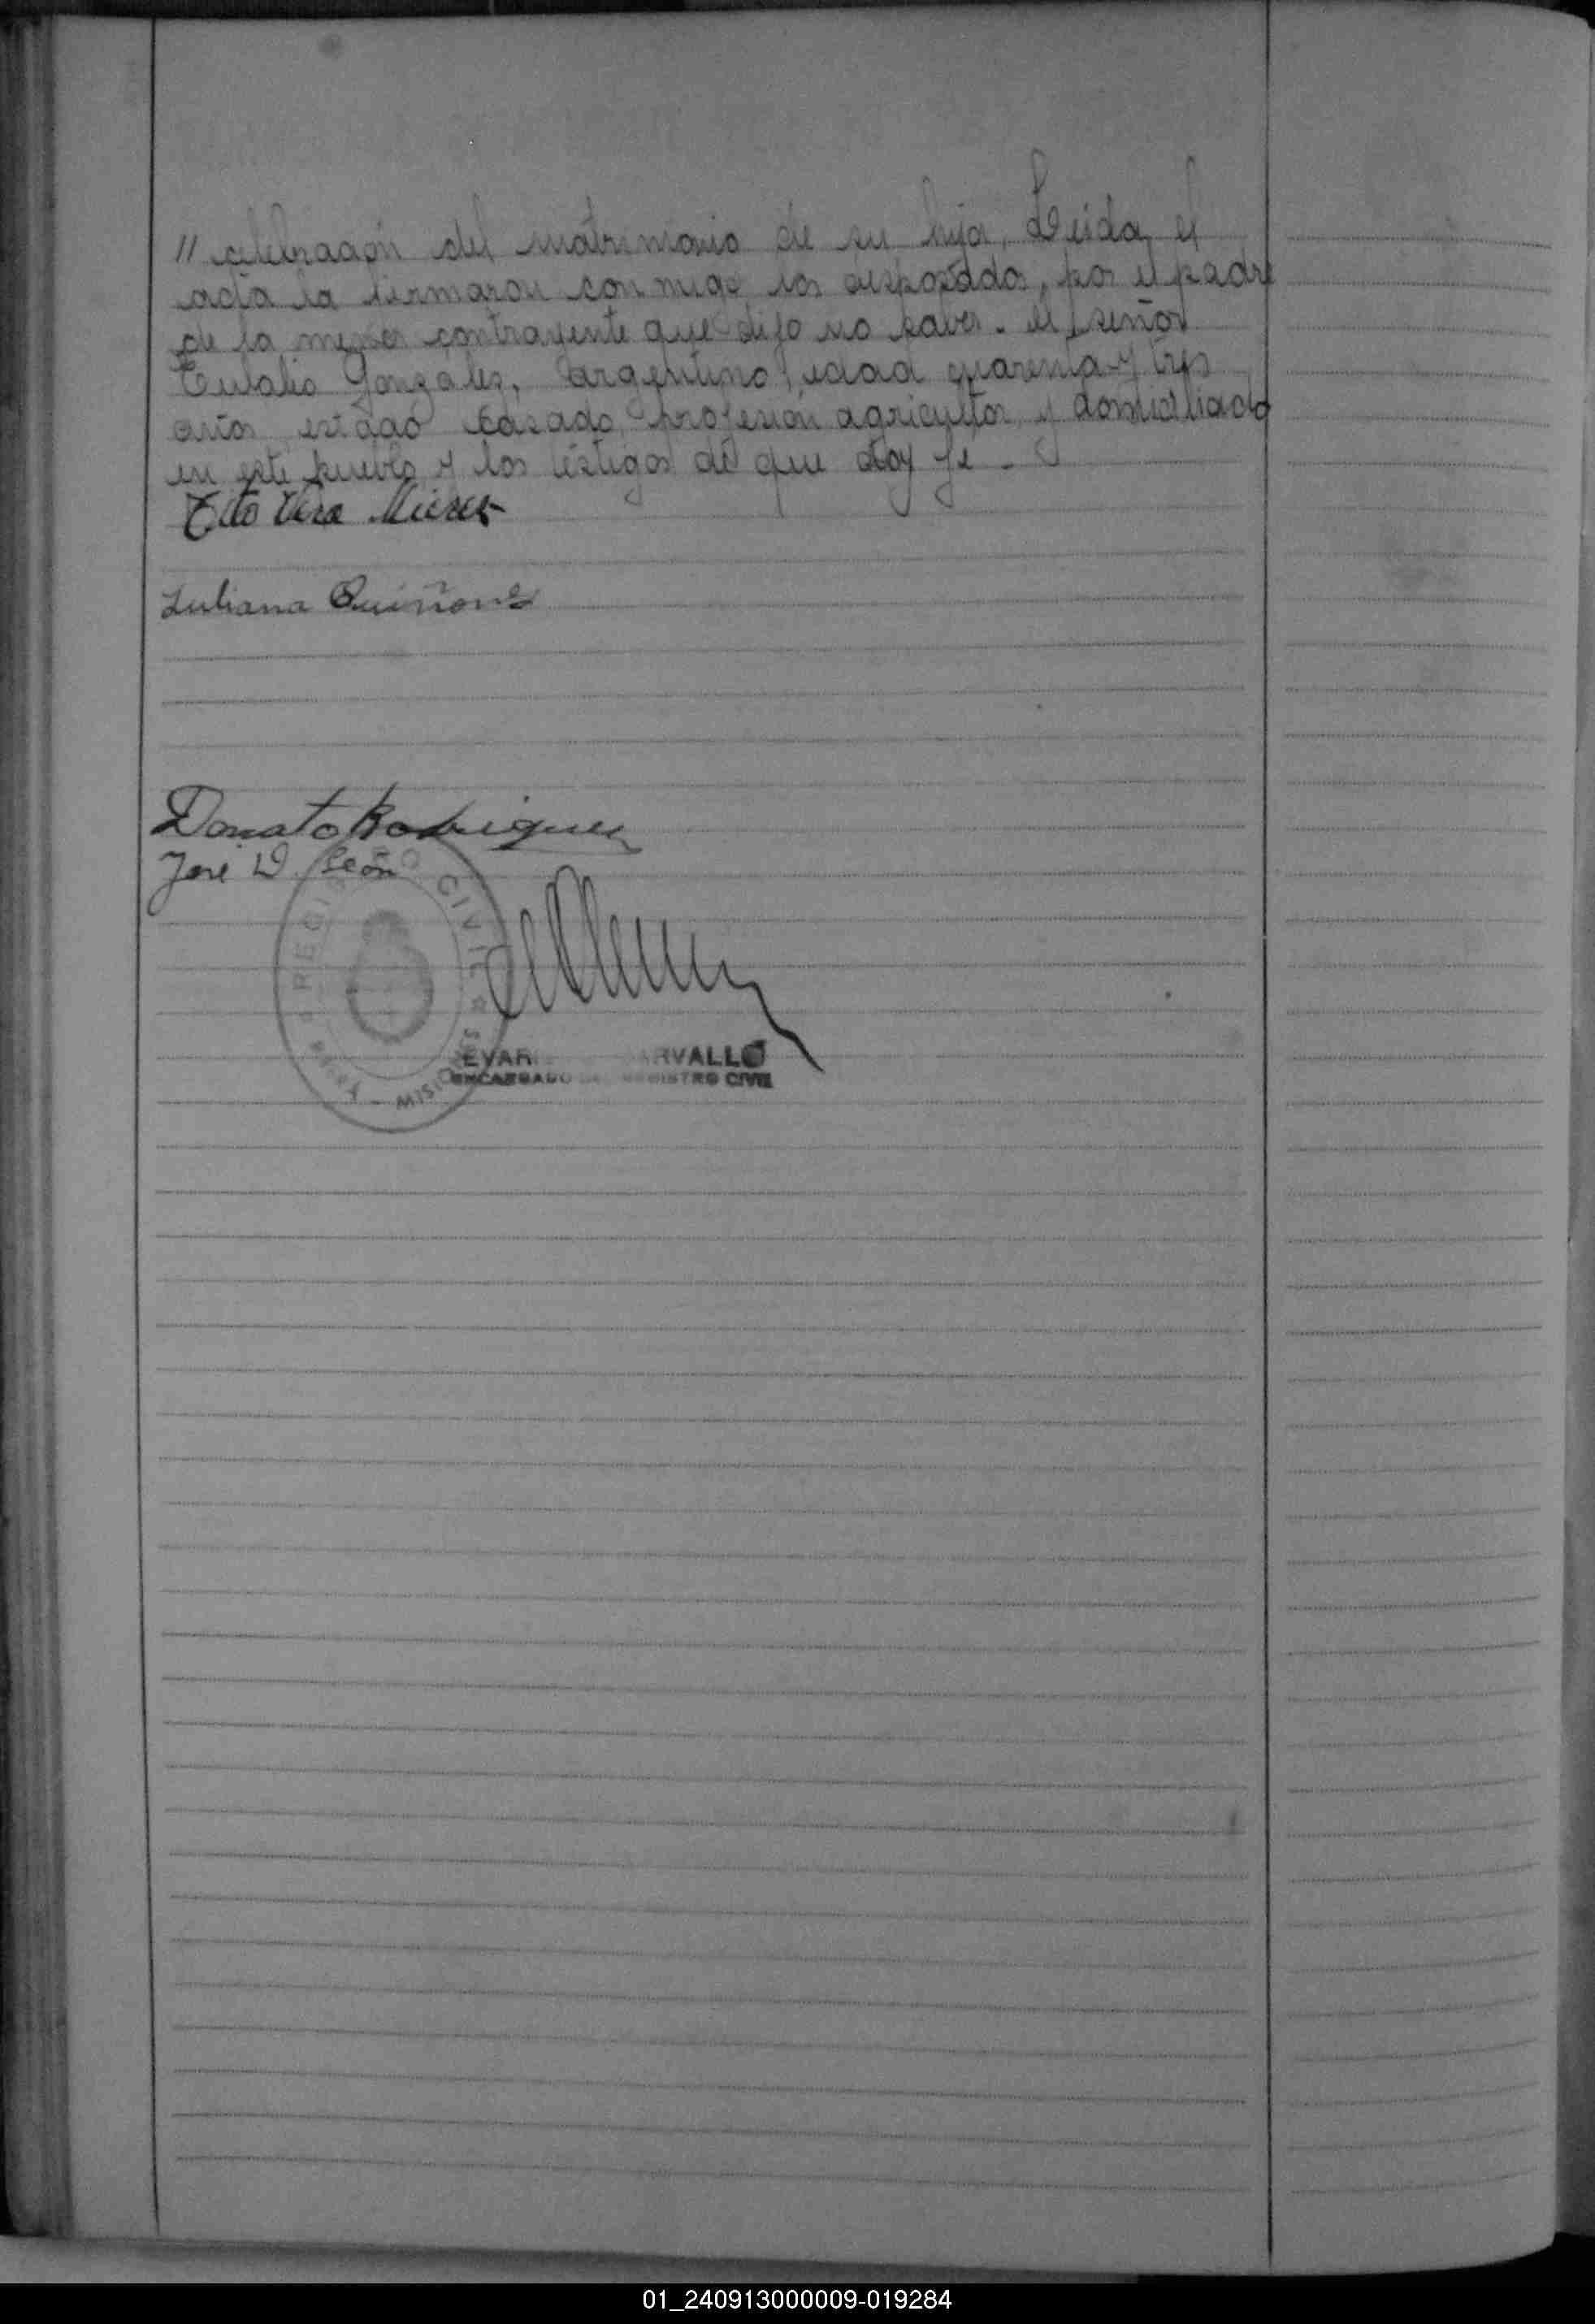 // celebración del matrimonio de su hija, Leida el
acta la firmaron con migo los desposados, por el padre
de la menor contrayente que dijo no saber. el señor
Eulalio Gonzales, argentino, edad cuarenta y tres
años estado casado, profesión agricultor y domiciliado
en este pueblo y los testigos de que doy fe.
Tito Vera
Juliana Quiñones
Donato Rodriguez
José D. León
REGISTRO CIVIL
MISIONES
EVAR RVALLO
ENCARGADO DEL REGISTRO CIVIL
01_240913000009-019284